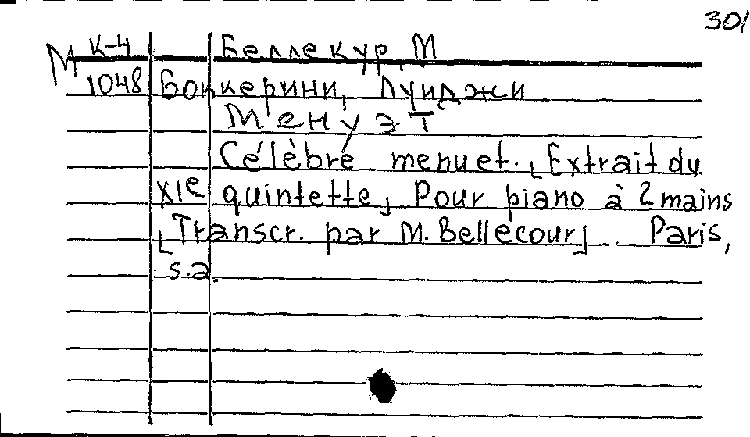 301
М К-4 Беллекур, М
1048 Боккерини, Луиджи
Менуэт
Célèbre menuet. [Extrait du
XIe quintette] Pour piano à 2 mains
[Transcr. par M. Bellecour]. Paris,
s.a.